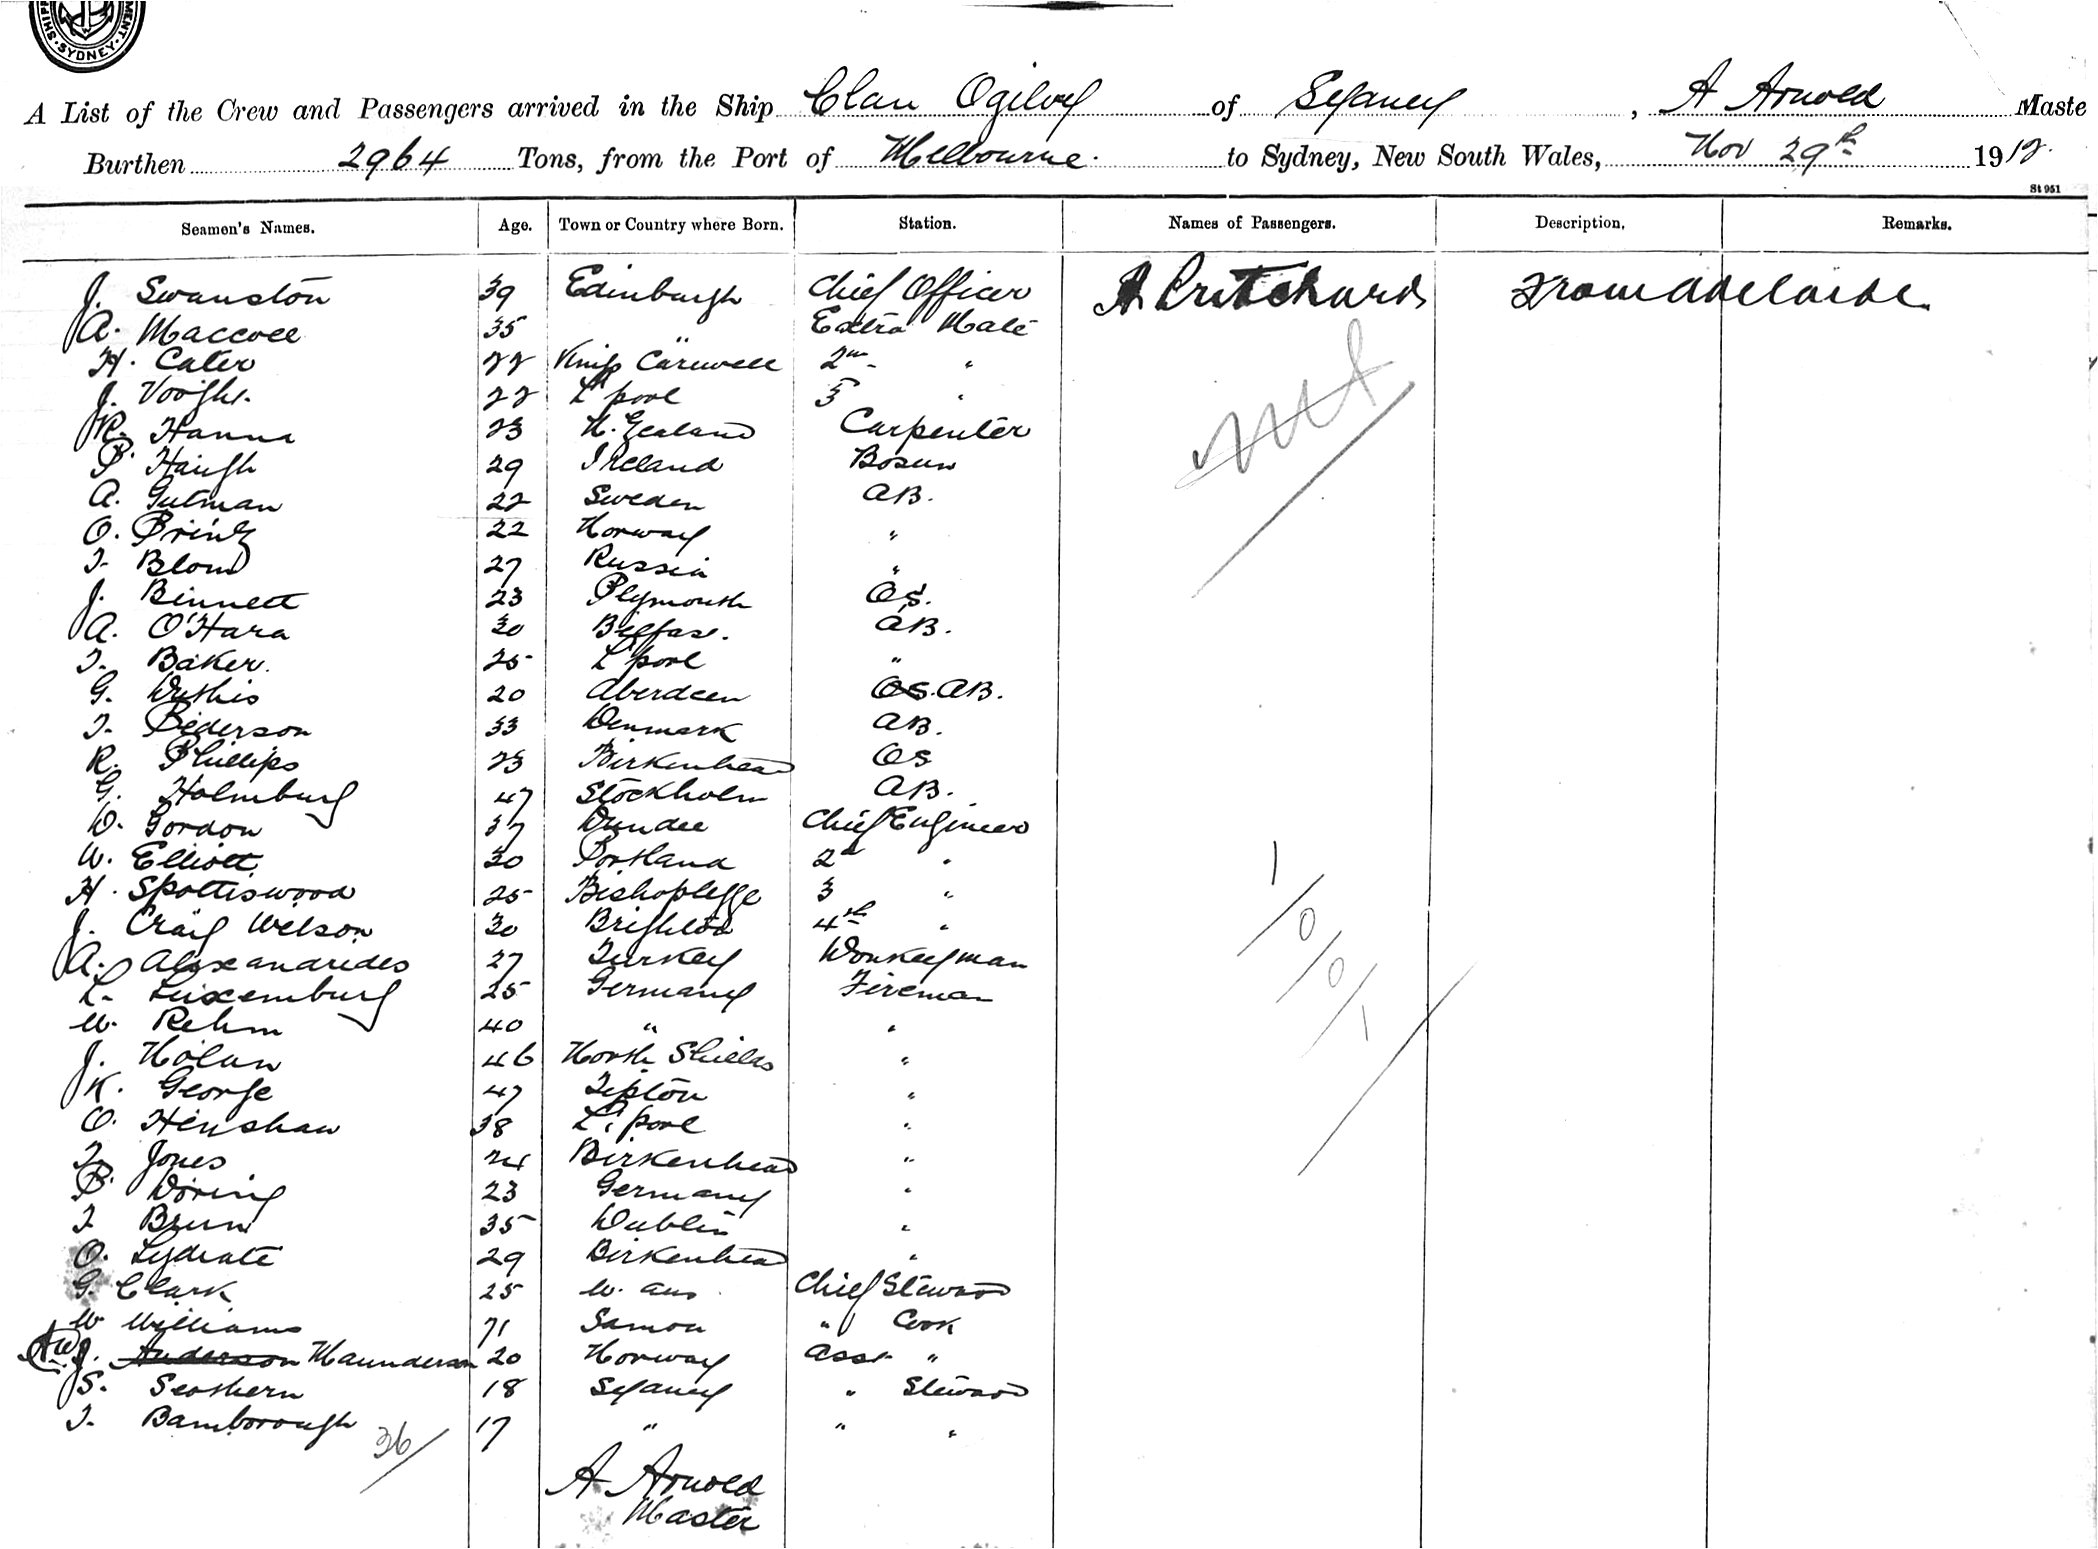 SHIPP MENT · SYDNEY ·
A List of the Crew and Passengers arrived in the Ship Clan Ogilvy of Sydney, A Arnold Maste
Burthen 2964 Tons, from the Port of Melbourne. to Sydney, New South Wales, Nov 29th 1912.
St 951
Seamen's Names. Age. Town or Country where Born. Station. Names of Passengers. Description. Remarks.
J. Swanston 39 Edinburgh Chief Officer A Pritchard From Adelaide
A. Maccoll 35 " Extra Mate
H. Cater 22 2nd "
J. Voight. 22 L'pool 3 "
R. Hanna 23 N. Zealand Carpenter
P. Haugh 29 Ireland Bosun
A. Gutman 22 Sweden AB.
O. Printz 22 Norway "
T. Blom 27 Russia "
J. Binnett 23 Plymouth OS.
A. O'Hara 30 Belfast. AB.
T. Baker. 25 L'pool "
G. 20 Aberdeen OS. AB.
T. Pederson 33 Denmark AB.
R. Phillips 23 Birkenhead OS
G. Holmburg 47 Stockholm AB.
D. Gordon 37 Dundee Chief Engineer
W. Elliott 30 Portland 2nd "
H. Spottiswood 25 3 "
J. Craig Welson 30 Brighton 4th "
A. Alexandrides 27 Turkey Donkeyman
L. Luxemburg 25 Germany Fireman
W. Rehm 40 " "
J. Nolan 46 North Shields "
K. George 47 Tipton "
O. Henshaw 38 L'pool "
T. Jones 24 Birkenhead "
P. Doring 23 Germany "
T. Brun 35 Dublin "
O. Lydiate 29 Birkenhead "
G. Clark 25 W. Aus Chief Steward
W. Williams 71 Samoa " Cook
J. Anderson Maunderson 20 Norway Asst "
S. Seothern 18 Sydney " Steward
T. Bamborough 17 " " "
36/
1/0/0/1
A Arnold
Master